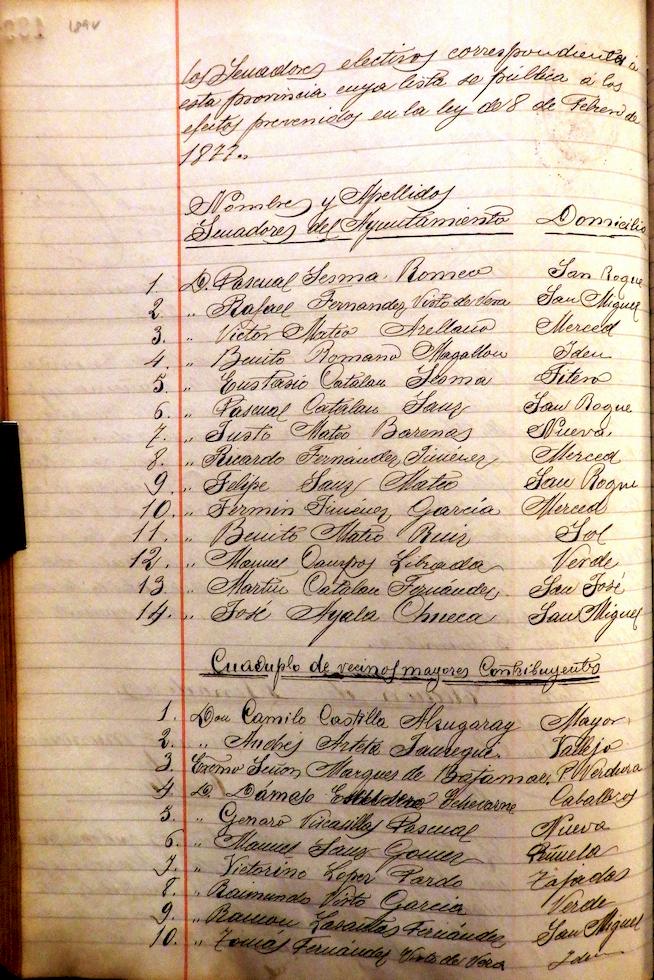 1894
los Senadores electivos correspondientes á
esta provincia cuya lista se publica á los
efectos prevenidos en la ley de 8 de Febrero de
1877.
Nombres y Apellidos
Senadores del Ayuntamiento Domicilio
1. D. Pascual Sesma Romeo San Roque
2. " Rafael Fernandez Visto de Vera San Miguel
3. " Victor Mateo Arellano Merced
4. " Benito Romano Magallon Idem
5. " Eustasio Catalan Sesma Fitero
6. " Pascual Catalan Sanz San Roque
7. " Justo Mateo Barenas Nueva
8. " Ricardo Fernández Jiménez Merced
9. " Felipe Sanz Mateo San Roque
10. " Fermin Jiménez García Merced
11. " Benito Mateo Ruiz Sol
12. " Manuel Campos Librada Verde
13. " Martin Catalan Fernández San José
14. " José Ayala Chueca San Miguel
Cuaduplo de vecinos mayores Contribuyentes
1. Don Camilo Castilla Alzugaray Mayor
2. " Andrés Arteta Jauregui Vallejo
3. Exemo Señor Marques de Bajamar
4. D. Dámaso Echevarne Caballeros
5. " Genaro Pascual Nueva
6. " Manuel Sanz Gomez
7. " Victorino Lopez Pardo Tajadas
8. " Raimundo Visto Garcia Verde
9. " Ramon Lasantas Fernández San Miguel
10. " Tomas Fernández Visto de Vera Idem